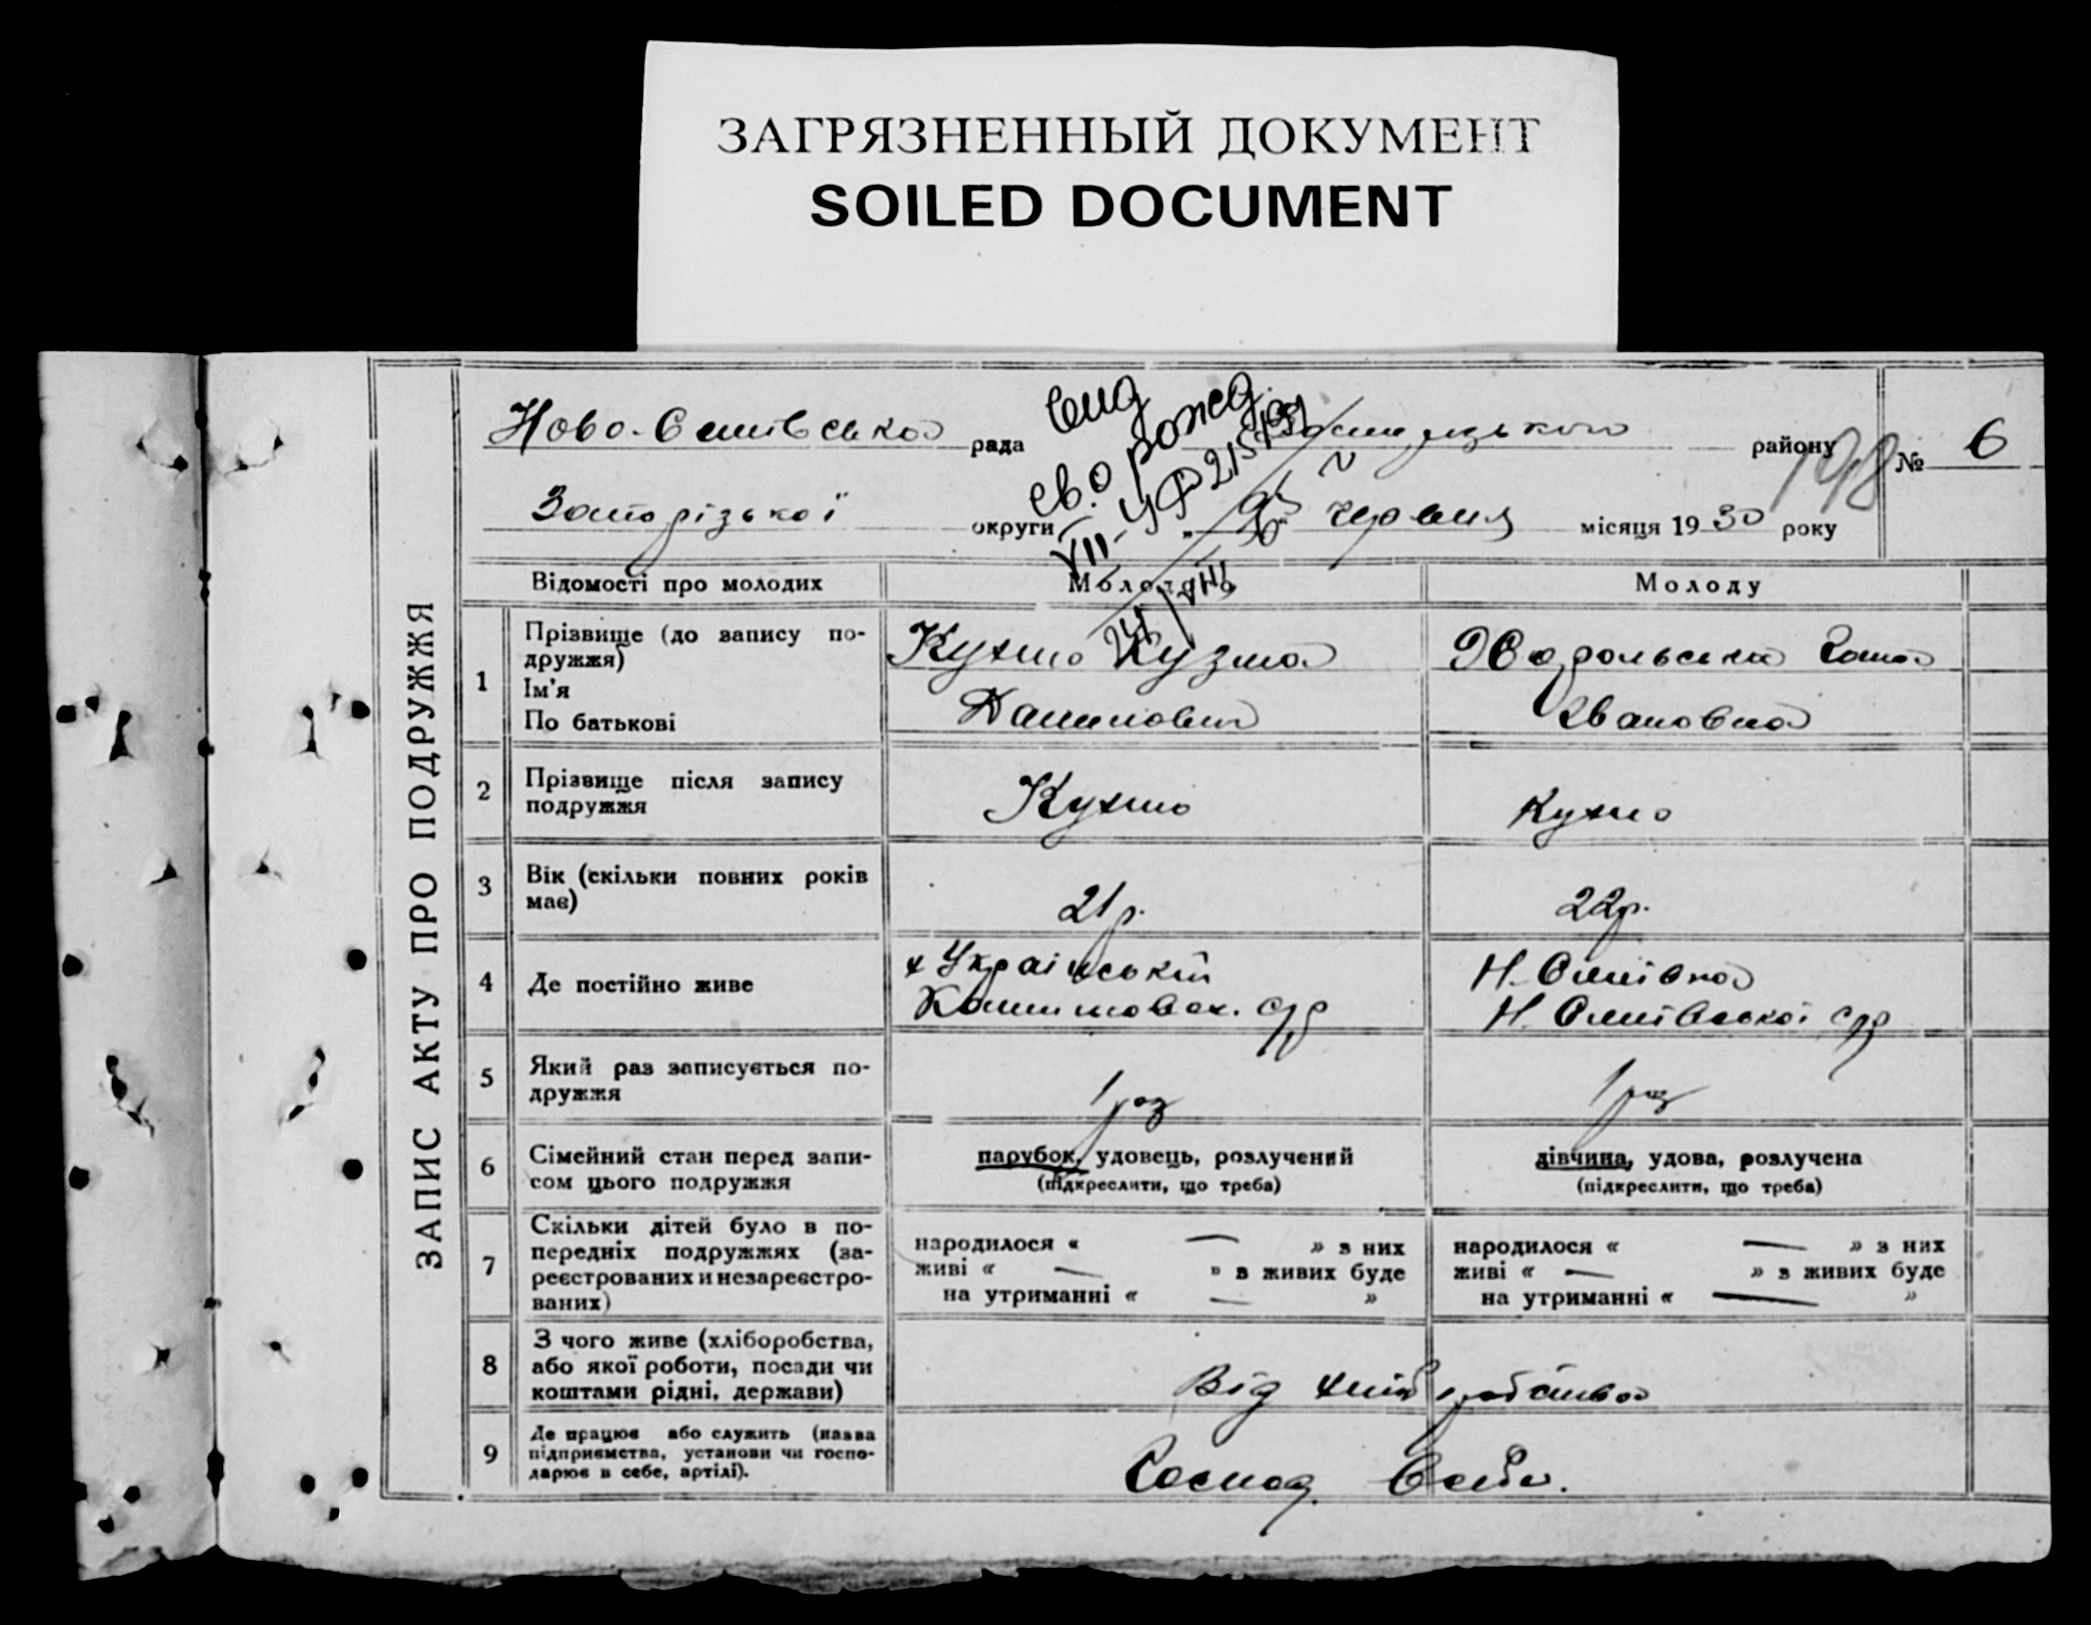 ЗАГРЯЗНЕННЫЙ ДОКУМЕНТ
SOILED DOCUMENT
ЗАПИС АКТУ ПРО ПОДРУЖЖЯ
рада
району
№ 6
198
Запорізької округи
червня місяця 1930 року
вид
св. о рожд.
VII-УФ
Відомості про молодих
Молодого
Молоду
1
Прізвище (до запису по-
дружжя)
Ім'я
По батькові
Кухно Кузма
Данилович
Івановна
2
Прізвище після запису
подружжя
Кухно
Кухно
3
Вік (скільки повних років
має)
21 р.
22 р.
4
Де постійно живе
х Український
с/р
Н.
Н. с/р
5
Який раз записується по-
дружжя
1 раз
1 раз
6
Сімейний стан перед запи-
сом цього подружжя
парубок, удовець, розлучений
(підкреслити, що треба)
дівчина, удова, розлучена
(підкреслити, що треба)
7
Скільки дітей було в по-
передніх подружжях (за-
реєстрованих и незареєстро-
ваних)
народилося « — » з них
живі « — » з живих буде
на утриманні « — »
народилося « — » з них
живі « — » з живих буде
на утриманні « — »
8
З чого живе (хліборобства,
або якої роботи, посади чи
коштами рідні, держави)
Від хліборобства
9
Де працює або служить (назва
підприємства, установи чи госпо-
дарює в себе, артілі).
Господ. в себе.